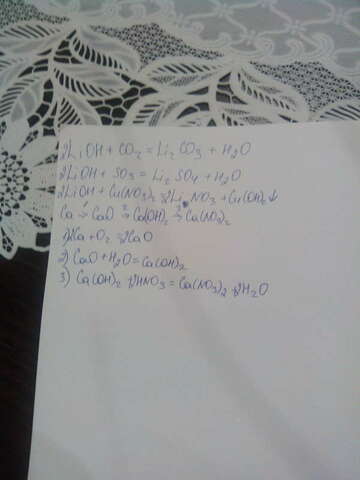 2LiOH + CO₂ = Li₂CO₃ + H₂O
2LiOH + SO₃ = Li₂SO₄ + H₂O
2LiOH + Cu(NO₃)₂ = 2LiNO₃ + Cu(OH)₂↓
Ca →¹ CaO →² Ca(OH)₂ →³ Ca(NO₃)₂
1) 2Ca + O₂ = 2CaO
2) CaO + H₂O = Ca(OH)₂
3) Ca(OH)₂ + 2HNO₃ = Ca(NO₃)₂ + 2H₂O